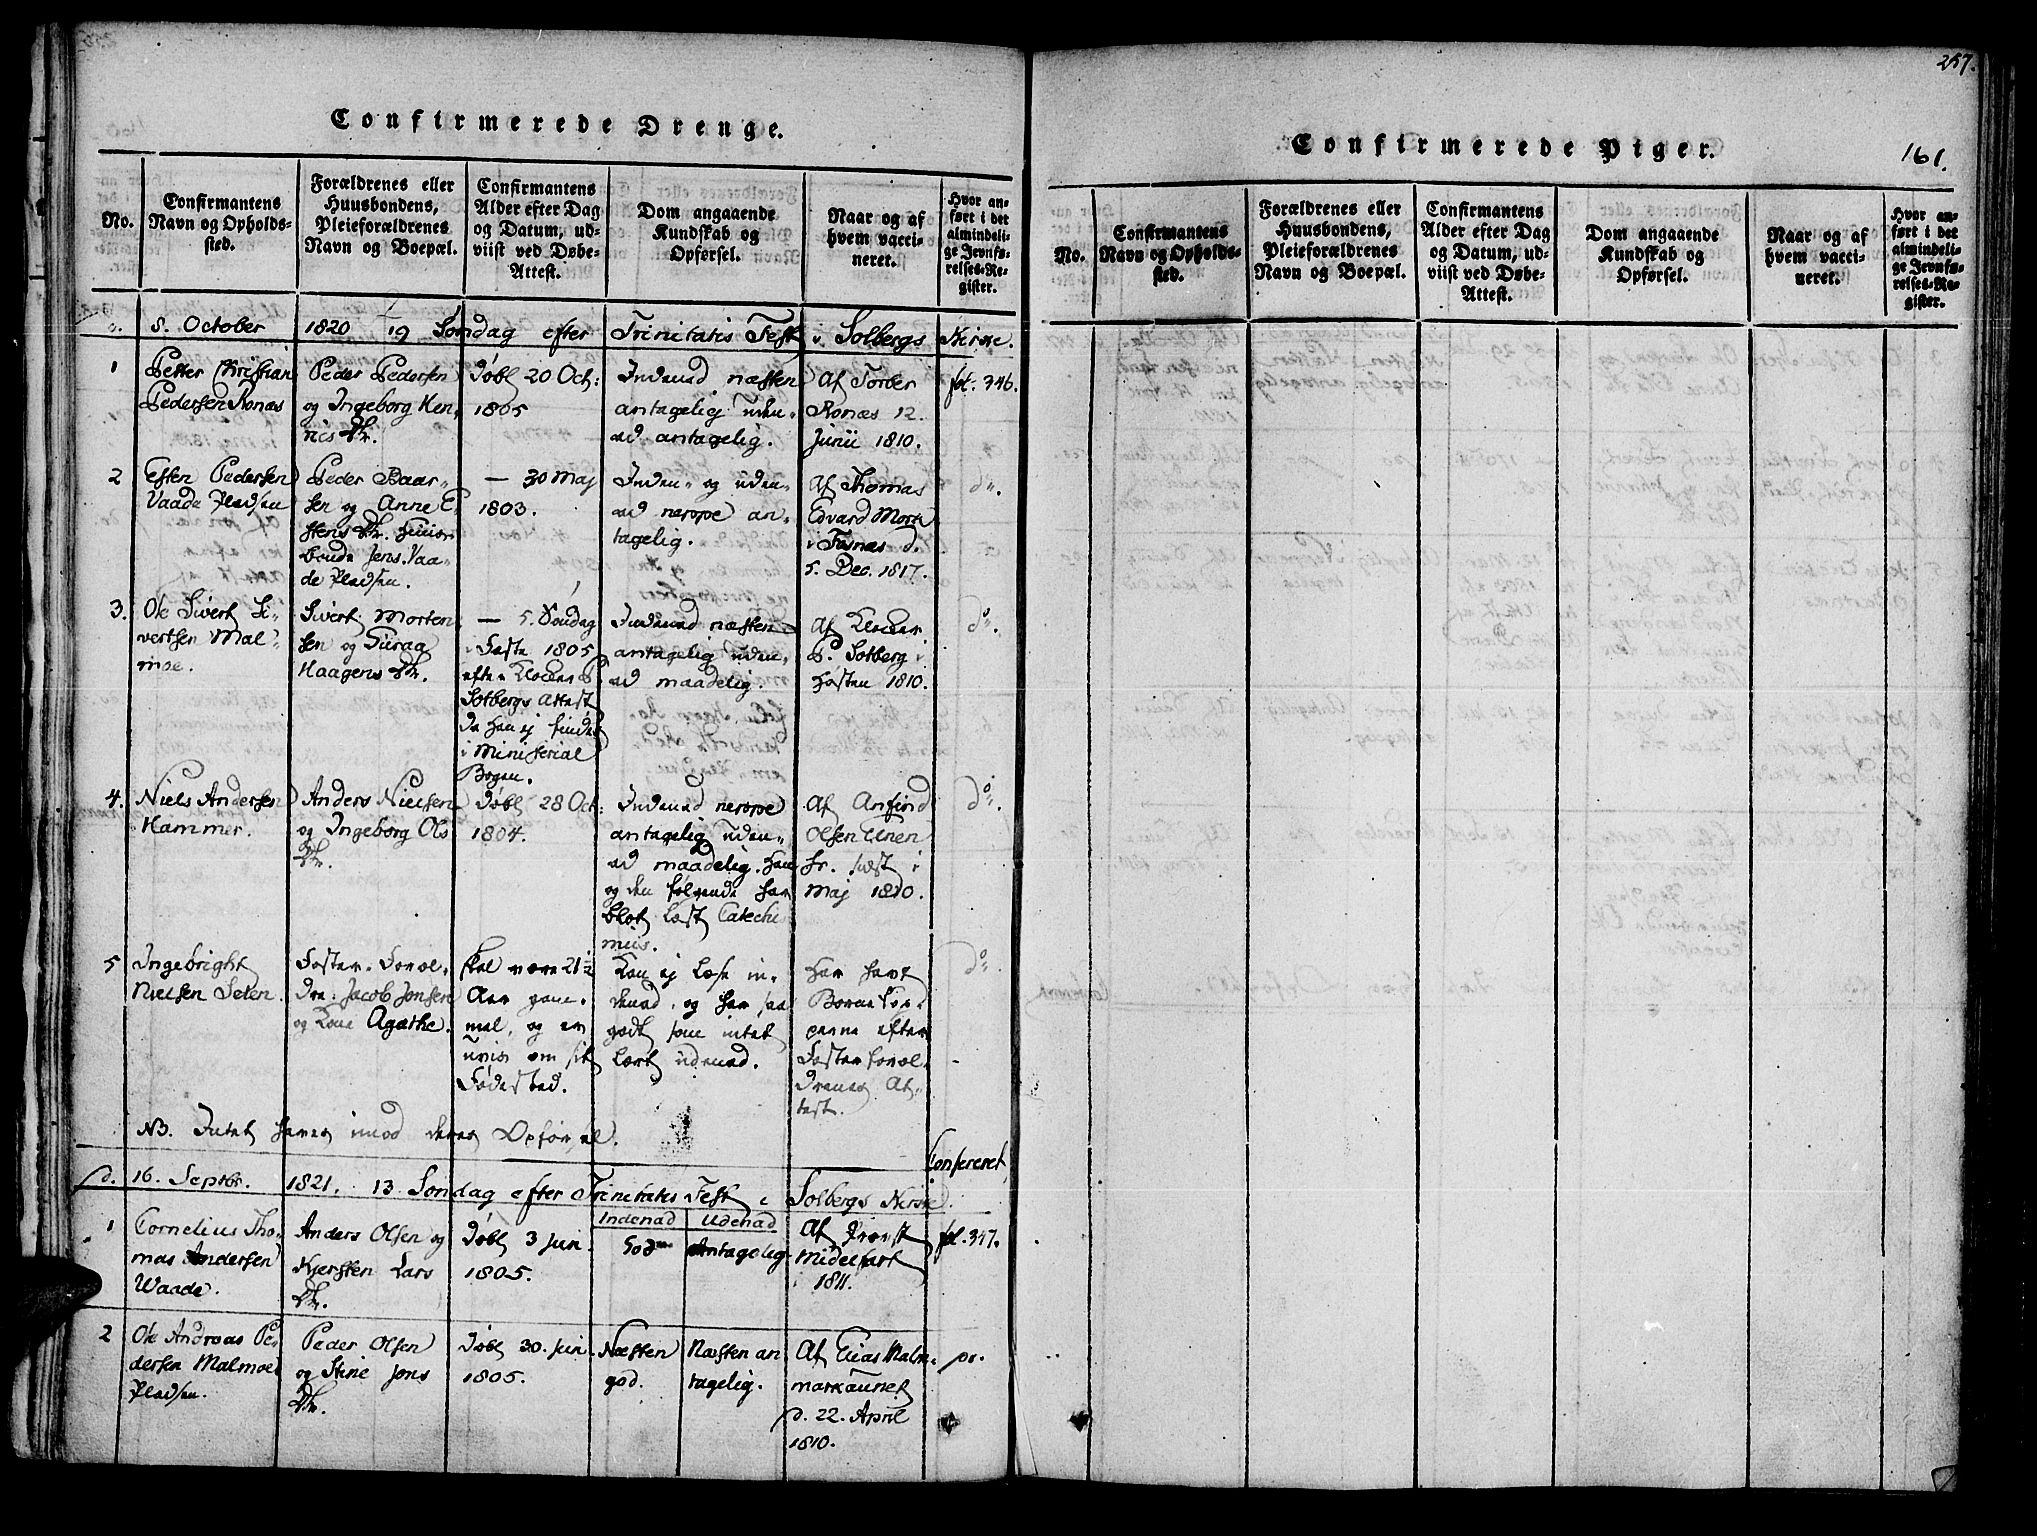 Confirmerede Drenge.
No.
Confirmantens
Navn og Opholds-
sted.
Forældrenes eller
Huusbondens,
Pleieforældrenes
Navn og Boepæl.
Confirmantens
Alder efter Dag
og Datum, ud-
viist ved Døbe-
Attest.
Dom angaaende
Kundskab og
Opførsel.
Naar og af
hvem vacci-
neret.
Hvor an-
ført i det
almindeli-
ge Jevnfø-
relses-Re-
gister.
8. October 1820 19 Søndag efter Trinitatis Fest i Solbergs Kirke.
1
Petter Christian
Pedersen Ronæs
Peder Pedersen
og Ingeborg Hen-
rics Dtr.
Døbt 20 Oct:
1805
Indenad næsten
antagelig uden-
ad antagelig.
Af Torber
Ronæs 12.
Junii 1810.
fol. 346.
2
Esten Pedersen
Vaade Pladsen
Peder Baar-
sen og Anne E-
stens Dtr. Huus-
bonde Jens Vaa-
de Pladsen.
— 30 Maj
1803.
Inden- og uden-
ad neppe an-
tagelig.
Af Thomas
Edvard Mork
i Fosnæs d.
5. Dec. 1817.
do.
3.
Ole Sivert Si-
vertsen Mal-
moe.
Sivert Morten-
sen og Guraa
Haagens Dtr.
— 5. Søndag
i Faste 1805
efter Klokker P
Solbergs Attest
da han ej findes
i Ministerial
Bogen.
Indenad næsten
antagelig uden-
ad maadelig.
Af Klokker
P. Solberg i
Høsten 1810.
do.
4.
Niels Andersen
Hammer.
Anders Nielsen
og Ingeborg Ols
Dtr.
Døbt 28 Oct:
1804.
Indenad neppe
antagelig uden-
ad maadelig. Han
og den følgende har
blot læst Catechi
mus.
Af Anfind
Olsen Elnen
hr. sidst i
Maj 1810.
do.
5
Ingebright
Nielsen Seten.
Foster-Foræl-
dre: Jacob Jonsen
og Kone Agathe.
Skal være 21½
Aar gam-
mel, og er
uvis om sit
Fødested.
Kan ej læse in-
denad, og har saa
godt som intet
lært udenad.
Har havt
Børne Kop-
perne efter
Fosterforæl-
drenes At-
test.
do.
NB. Intet haves imod deres Opførsel.
Confereret
d. 16. Septbr. 1821. 13 Søndag efter Trinitatis Fest i Solbergs Kirke.
Indenad
Udenad
1
Cornelius Tho-
mas Andersen
Waade.
Anders Olsen og
Kjersten Lars
Dtr.
Døbt 3 Jun.
1805.
God
Antagelig
Af Provst
Midelfart
i 1811.
fol. 347.
2
Ole Andreas Pe-
dersen Malmoe
Pladsen.
Peder Olsen
og Stine Jons
Dtr.
Døbt 30. Jun.
1805.
Næsten
god.
Næsten an
tagelig.
Af Elias Malm-
markaunet
d. 22. April
1810.
257.
Confirmerede Piger.
161.
No.
Confirmantens
Navn og Opholds-
sted.
Forældrenes eller
Huusbondens,
Pleieforældrenes
Navn og Boepæl.
Confirmantens
Alder efter Dag
og Datum, ud-
viist ved Døbe-
Attest.
Dom angaaende
Kundskab og
Opførsel.
Naar og af
hvem vacci-
neret.
Hvor an-
ført i det
almindeli-
ge Jevnfø-
relses-Re-
gister.